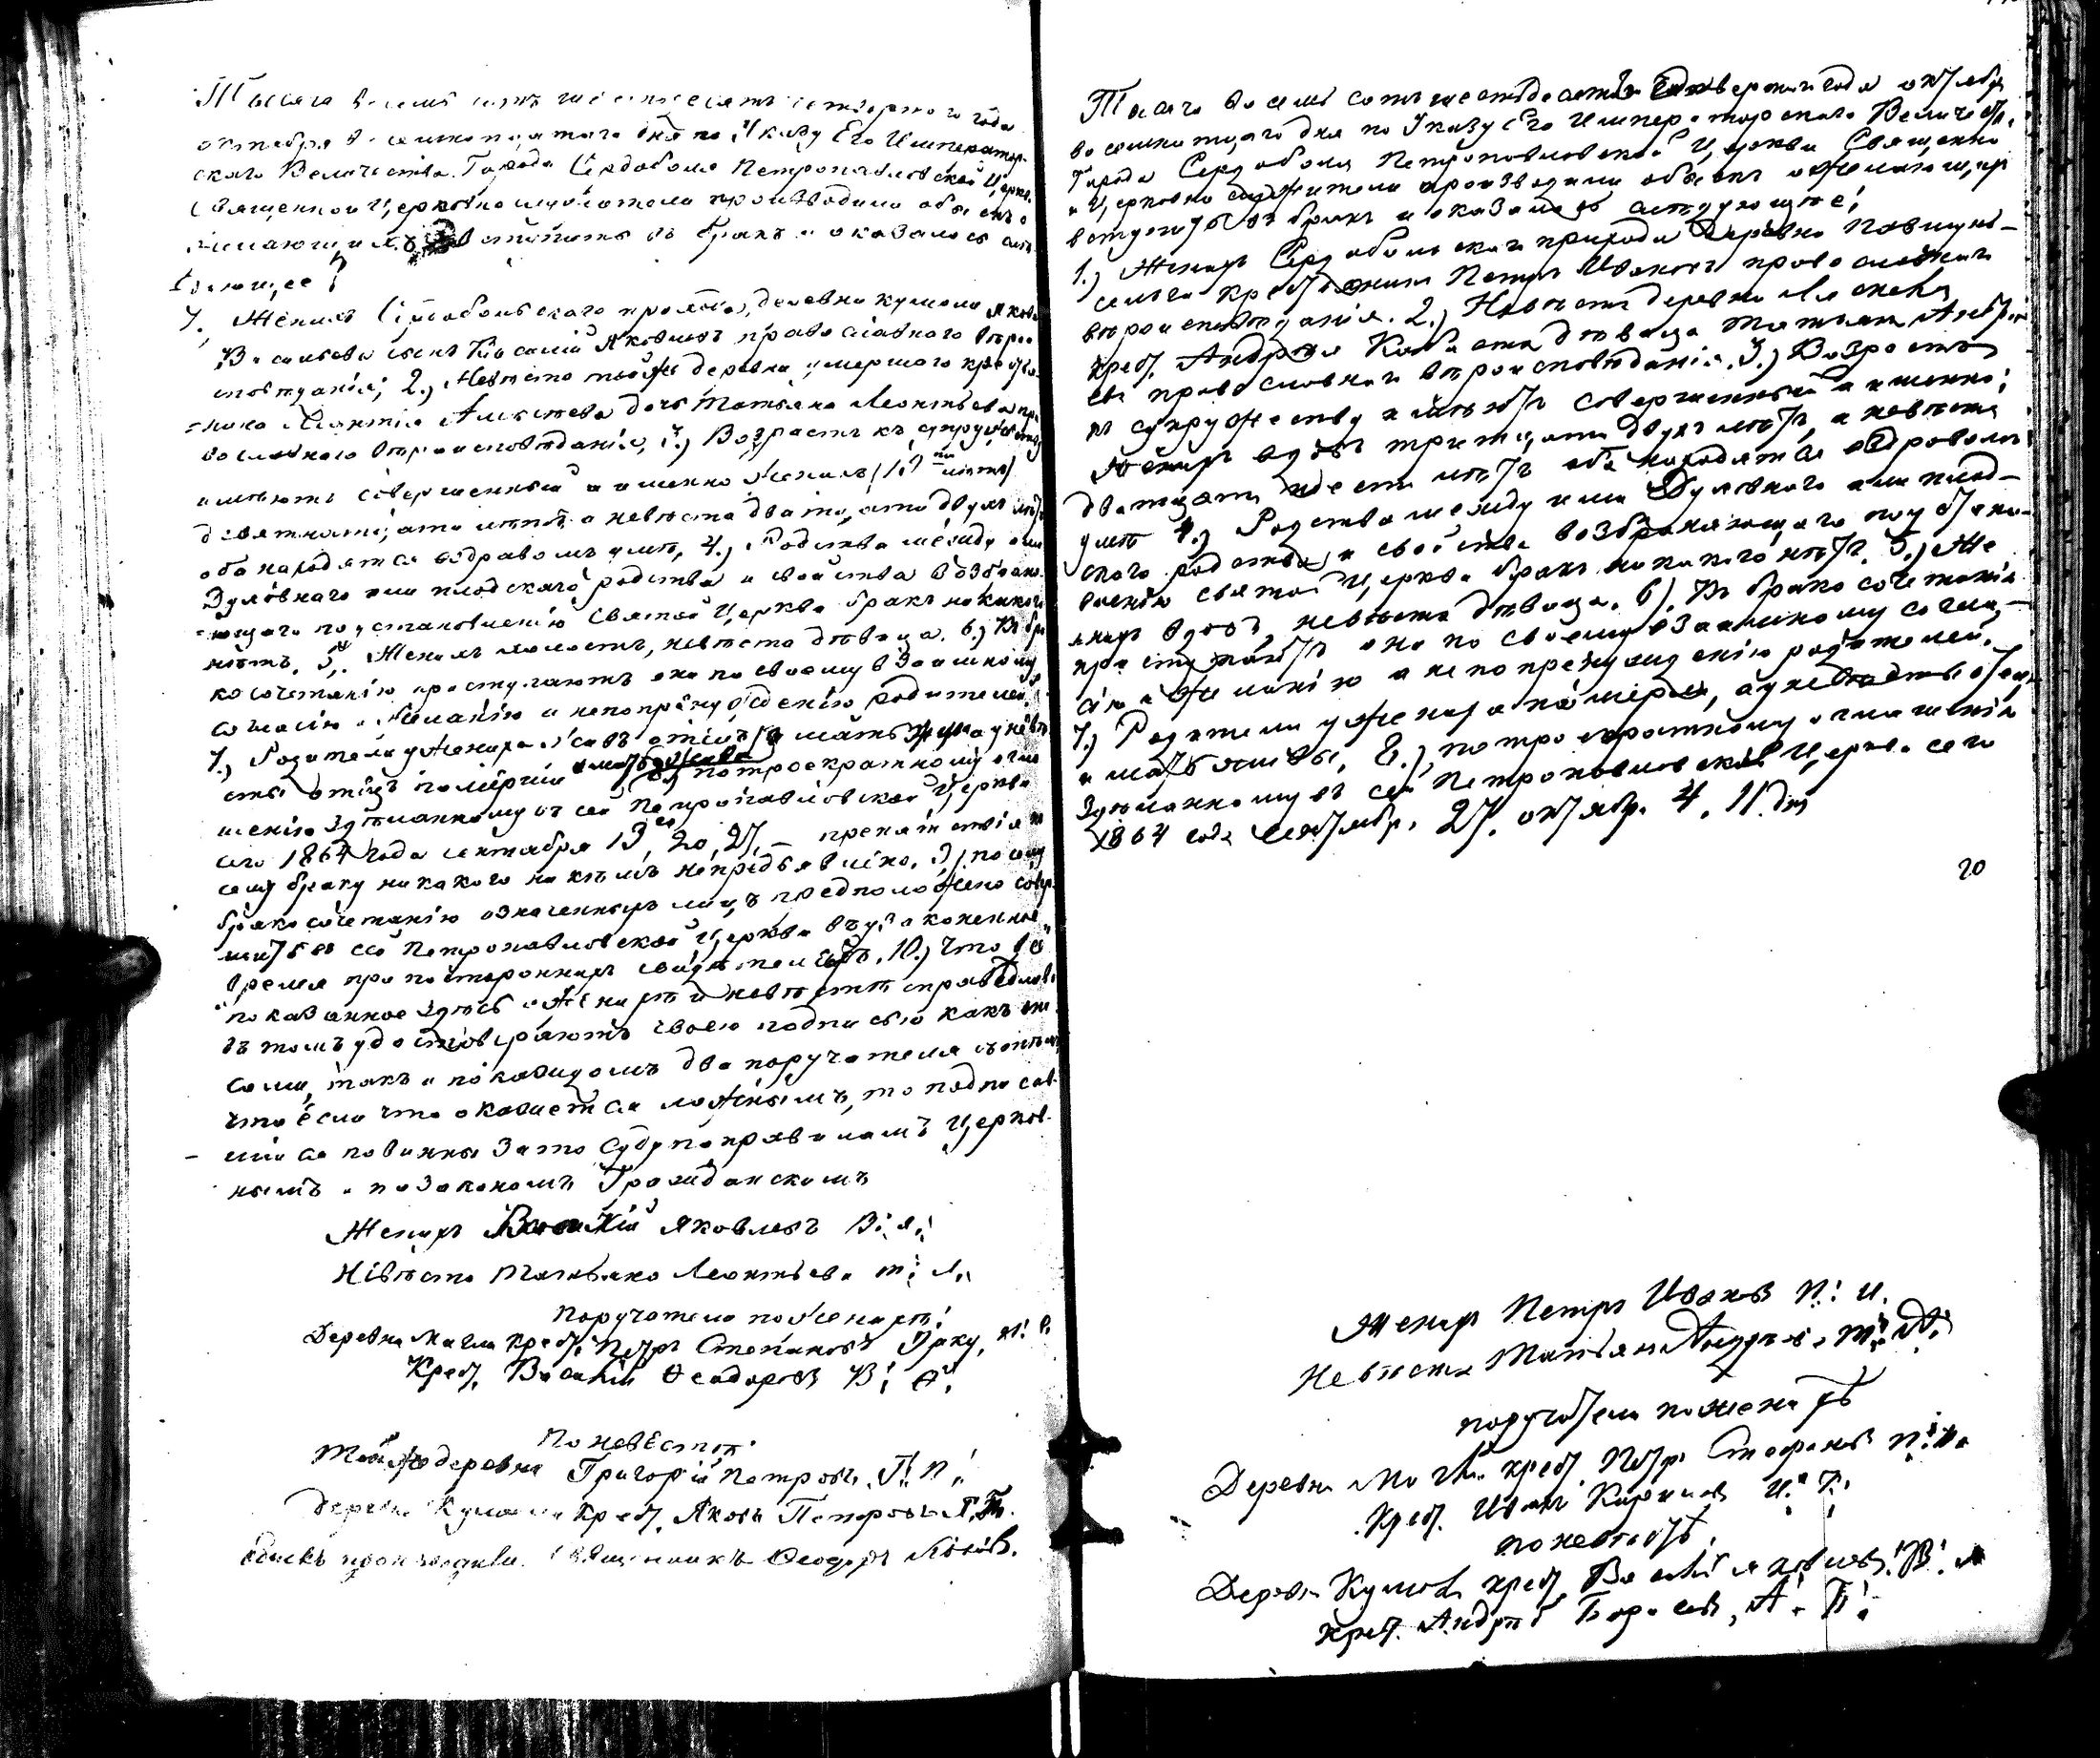 Тысяча восемь сотъ шестьдесятъ четвертаго года
октября восемнатцатаго дня по Указу Его Император-
скаго Величества Города Сердоболя Петропавловской церкви
Священно и церковно служители производили обыскъ о
желающихъ вступить въ бракъ и оказалось слѣ-
дующее;
1, Женихъ Сердобольскаго прихода, деревни Кумола Яковъ
Васильева сынъ Василій Яковлевъ православнаго вѣро
исповѣданія; 2.) Невѣста той же деревни умершаго крестья-
нина Леонтія Алексѣева дочь Татьяна Леонтьева пра
вославнаго вѣроисповѣданія, 3.) Возрастъ къ супружеству
имѣютъ совершенный и именно женихъ /19 ти лѣтъ/
девятнатцати лѣтъ, а невѣста двадцати двухъ лѣтъ
оба находятся въ здравомъ умѣ, 4.) Родства между ими
Духовнаго или плодскаго родства и свойства возбраня-
ющаго по установленію Святой Церкви бракъ никакого
нѣтъ, 5, Женихъ холостъ, невѣста дѣвица. 6.) Къ бра
косочетанію приступаютъ они по своему взаимному
согласію и желанію а не по принужденію родителей.
7.) Родители у жениха живъ отецъ и мать а у невѣ
сты отецъ померши а мать жива 8.) по троекратному огла
шенію здѣланному въ сей Петропавловской Церкви
сего 1864 года сентября 13, 20, 27, – препятствія къ
сему браку никакого ни кѣмъ не предъявлено. 9) по сему
бракосочетанію означенныхъ лицъ предположено совер
шить въ сей Петропавловской Церкви въ узаконенное
время при постороннихъ свидѣтеляхъ. 10.) Что все
показанное здѣсь о женихѣ и невѣстѣ справедливо
въ томъ удостовѣряютъ своею подписью какъ они
сами, такъ и по каждомъ два поручителя съ тѣмъ
что если что окажется ложнымъ, то подписав-
шіися повинны за то суду по правиламъ церков-
нымъ и по законамъ Гражданскимъ
Женихъ Василій Яковлевъ В: Я:
Невѣста Татьяна Леонтьева Т: Л.
Поручители по женихѣ:
Деревни крест. Петръ Степановъ П: С.
Крест. Василій Ѳеодоровъ В: Ѳ:
По невѣстѣ:
Той же деревни Григорій Петровъ. Г: П:
Деревни Кумола Крест. Яковъ Петровъ Я. П.
Обыскъ производилъ Священникъ Ѳеодоръ
Тысяча восемь сотъ шестьдесятъ четвертаго года октября
восемнатцаго дня по Указу Его Императорскаго Величест.
Города Сердоболя Петропавловской Церкви Священно
и церковно служители производили обыскъ о желающихъ
вступить въ бракъ и оказалось слѣдующее;
1.) Женихъ Сердобольскаго прихода деревни
крестьянинъ Петръ Ивановъ православнаго
вѣроисповѣданія. 2.) Невѣста деревни
крест. Андрея дѣвица Татьяна Андре
ева православнаго вѣроисповѣданія. 3.) Возрастъ
къ супружеству имѣютъ совершенный и именно;
Женихъ вдовъ тритцати двухъ лѣтъ, а невѣста
дватцати шести лѣтъ оба находятся въ здравомъ
умѣ 4.) Родства между ими Духовнаго или плод-
скаго родства и свойства возбраняющаго по устано-
вленію святой Церкви бракъ никакого нѣтъ. 5.) Же
нихъ вдовъ, невѣста дѣвица. 6). Къ бракосочетанію
приступаютъ они по своему взаимному согла-
сію и желанію а не по принужденію родителей.
7.) Родители у жениха померли, а у невѣсты отецъ
и мать живы, 8.) по троекратному оглашенію
здѣланному въ сей Петропавловской Церкви сего
1864 года сентября. 27. октября 4. 11. дня
20
Женихъ Петръ Ивановъ П: И.
Невѣста Татьяна Андреева Т: А:
поручители по женихѣ
Деревни крест. Петръ Стефановъ
Крест. Иванъ
по невѣстѣ.
Деревни Кумола крест. Василій Яковлевъ. В: Я
крест. Андрей